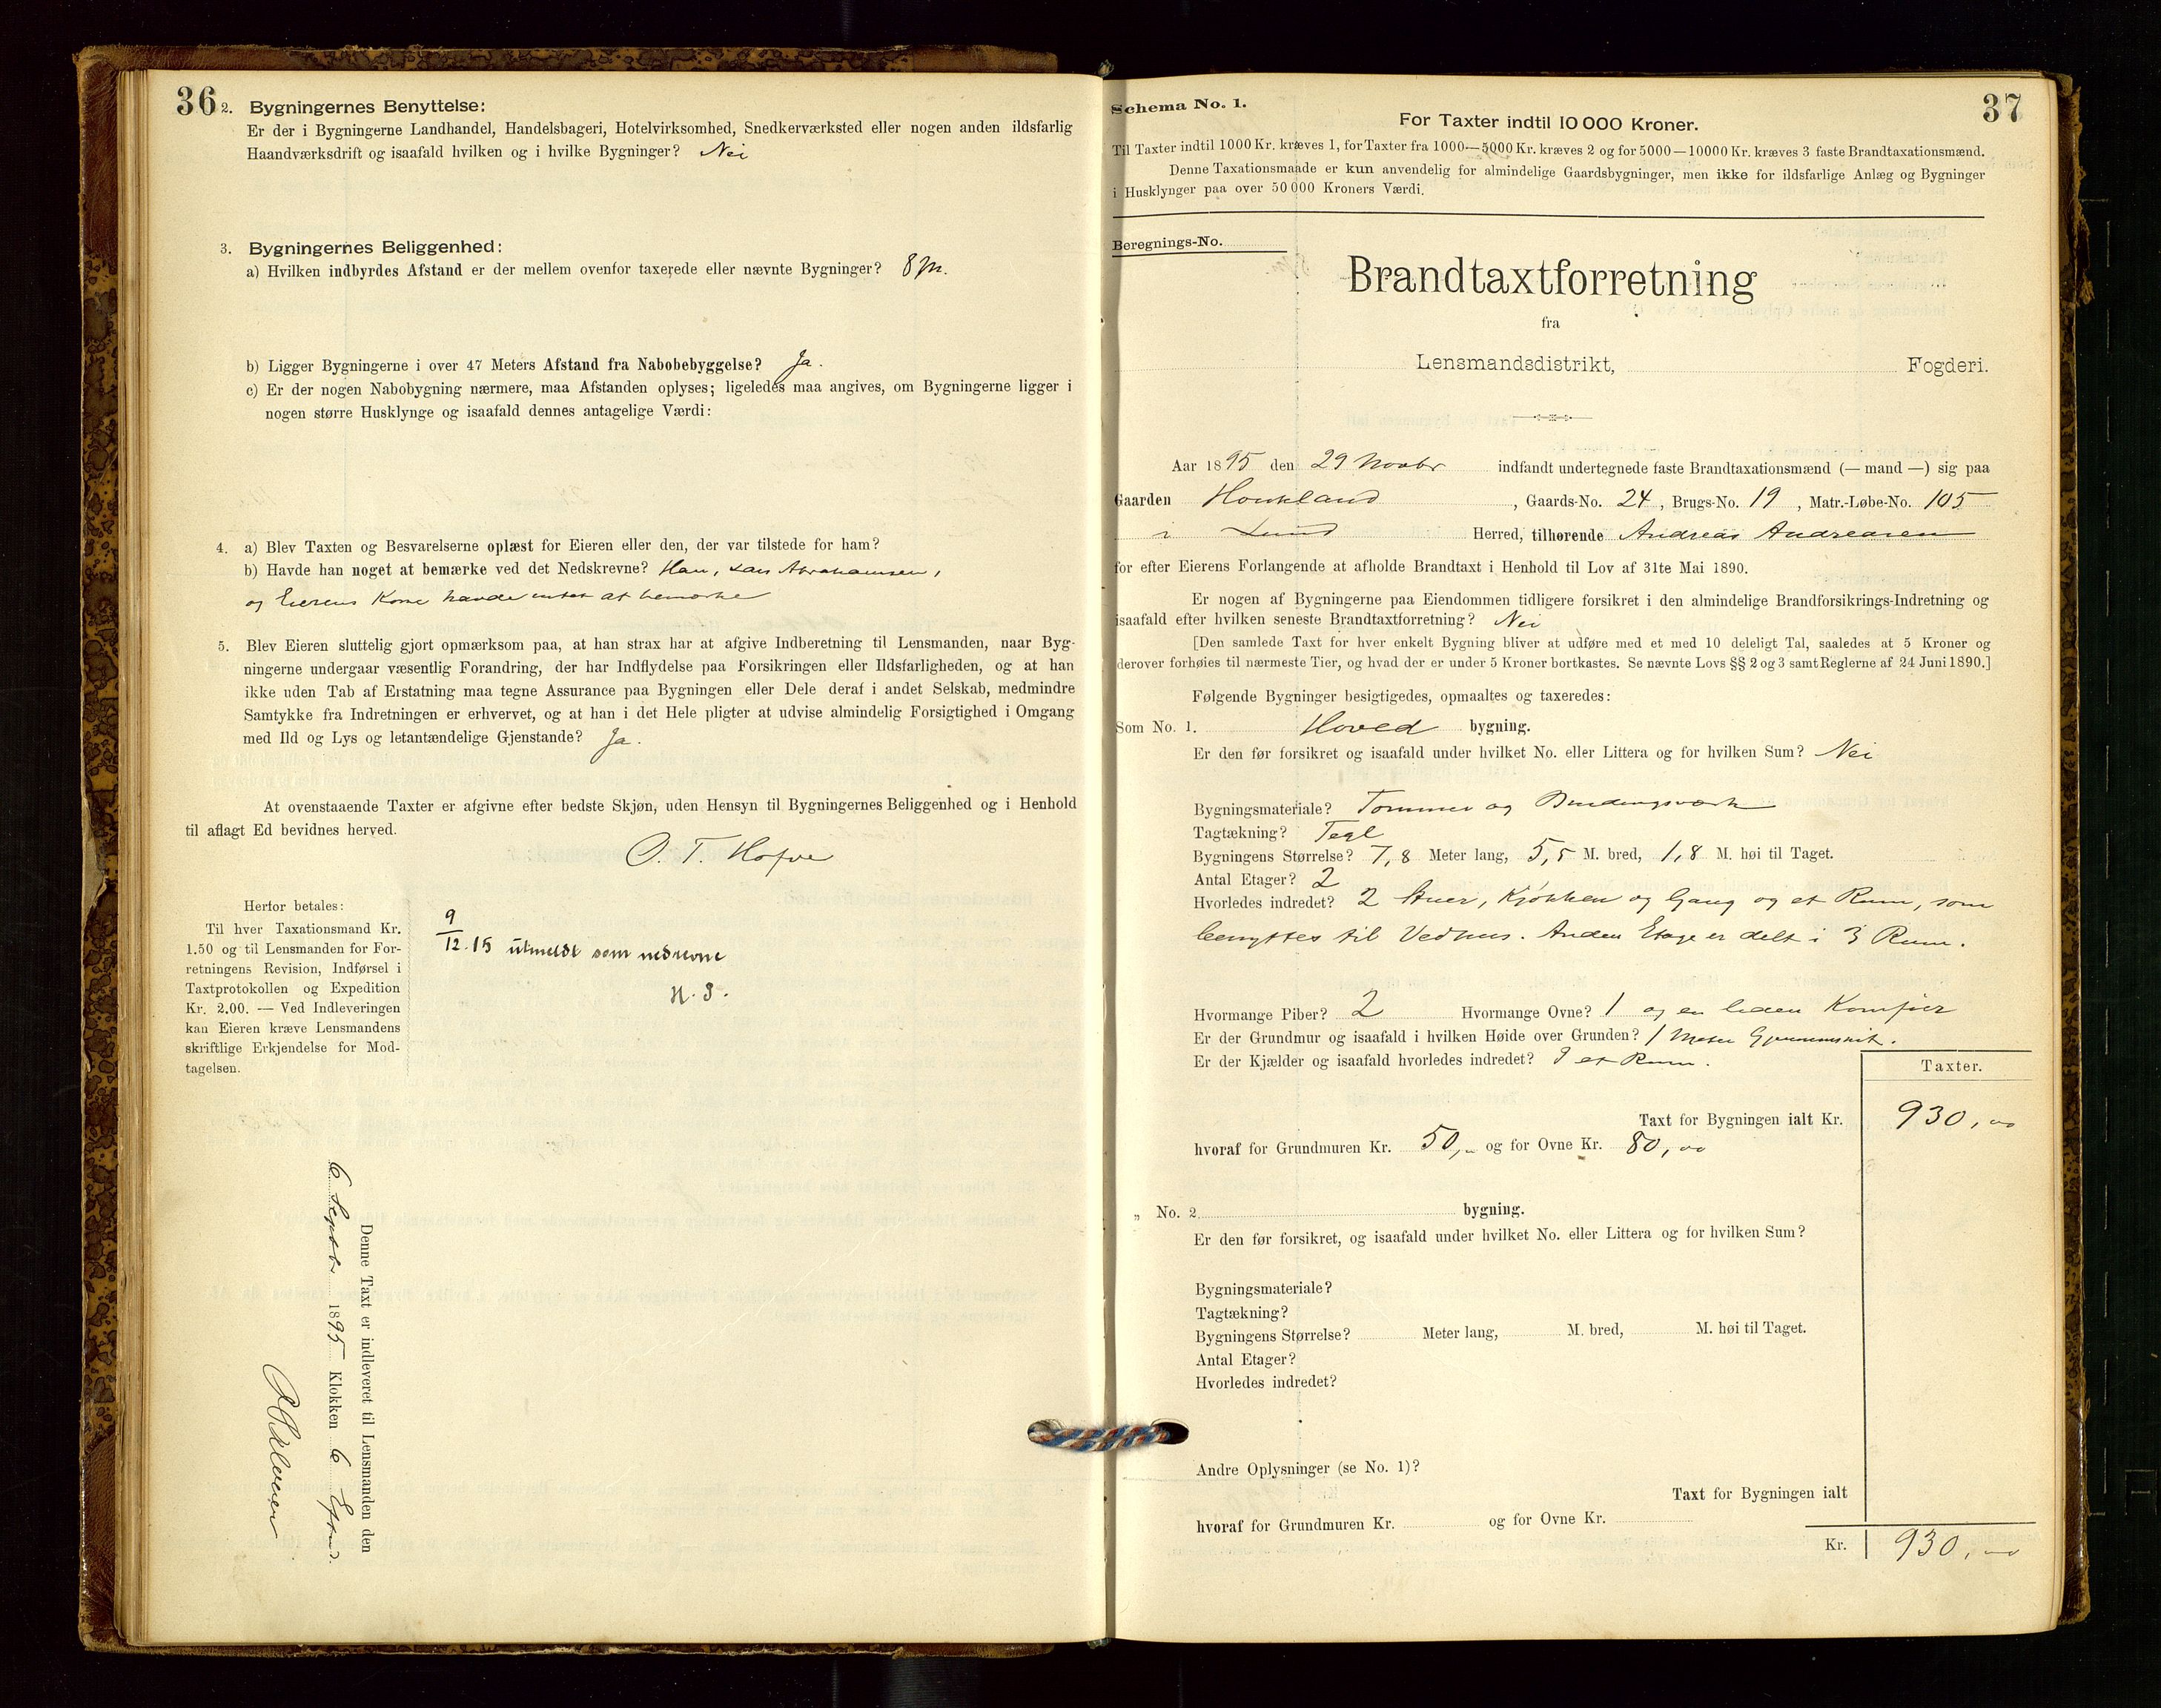 36
2. Bygningernes Benyttelse:
Er der i Bygningerne Landhandel, Handelsbageri, Hotelvirksomhed, Snedkerværksted eller nogen anden ildsfarlig
Haandværksdrift og isaafald hvilken og i hvilke Bygninger? Nei
3. Bygningernes Beliggenhed:
a) Hvilken indbyrdes Afstand er der mellem ovenfor taxerede eller nævnte Bygninger? 8 m.
b) Ligger Bygningerne i over 47 Meters Afstand fra Nabobebyggelse? Ja.
c) Er der nogen Nabobygning nærmere, maa Afstanden oplyses; ligeledes maa angives, om Bygningerne ligger i
nogen større Husklynge og isaafald dennes antagelige Værdi:
4. a) Blev Taxten og Besvarelserne oplæst for Eieren eller den, der var tilstede for ham?
b) Havde han noget at bemærke ved det Nedskrevne? Han, Lars Abrahamsen,
og Eierens Kone havde intet at bemærke
5. Blev Eieren sluttelig gjort opmærksom paa, at han strax har at afgive Indberetning til Lensmanden, naar Byg-
ningerne undergaar væsentlig Forandring, der har Indflydelse paa Forsikringen eller Ildsfarligheden, og at han
ikke uden Tab af Erstatning maa tegne Assurance paa Bygningen eller Dele deraf i andet Selskab, medmindre
Samtykke fra Indretningen er erhvervet, og at han i det Hele pligter at udvise almindelig Forsigtighed i Omgang
med Ild og Lys og letantændelige Gjenstande? Ja.
At ovenstaaende Taxter er afgivne efter bedste Skjøn, uden Hensyn til Bygningernes Beliggenhed og i Henhold
til aflagt Ed bevidnes herved.
O. T. Hofve
Herfor betales:
Til hver Taxationsmand Kr.
1.50 og til Lensmanden for For-
retningens Revision, Indførsel i
Taxtprotokollen og Expedition
Kr. 2.00. — Ved Indleveringen
kan Eieren kræve Lensmandens
skriftlige Erkjendelse for Mod-
tagelsen.
9/12.15 utmeldt som nedrevne
H. S.
Denne Taxt er indleveret til Lensmanden den
6 Septbr 1895 Klokken 6 Eftmd.
37
Schema No. 1.
For Taxter indtil 10 000 Kroner.
Til Taxter indtil 1000 Kr. kræves 1, for Taxter fra 1000—5000 Kr. kræves 2 og for 5000—10000 Kr. kræves 3 faste Brandtaxationsmænd.
Denne Taxationsmaade er kun anvendelig for almindelige Gaardsbygninger, men ikke for ildsfarlige Anlæg og Bygninger
i Husklynger paa over 50 000 Kroners Værdi.
Beregnings-No.
Brandtaxtforretning
fra
Lensmandsdistrikt, Fogderi.
Aar 1895 den 29 Novbr indfandt undertegnede faste Brandtaxationsmænd (— mand —) sig paa
Gaarden Houkland, Gaards-No. 24, Brugs-No. 19, Matr.-Løbe-No. 105
i Lund Herred, tilhørende Andreas Andreasen
for efter Eierens Forlangende at afholde Brandtaxt i Henhold til Lov af 31te Mai 1890.
Er nogen af Bygningerne paa Eiendommen tidligere forsikret i den almindelige Brandforsikrings-Indretning og
isaafald efter hvilken seneste Brandtaxtforretning? Nei
[Den samlede Taxt for hver enkelt Bygning bliver at udføre med et med 10 deleligt Tal, saaledes at 5 Kroner og
derover forhøies til nærmeste Tier, og hvad der er under 5 Kroner bortkastes. Se nævnte Lovs §§ 2 og 3 samt Reglerne af 24 Juni 1890.]
Følgende Bygninger besigtigedes, opmaaltes og taxeredes:
Som No. 1. Hoved bygning.
Er den før forsikret og isaafald under hvilket No. eller Littera og for hvilken Sum? Nei
Bygningsmateriale? Tømmer og Bindingsværk
Tagtækning? Tegl
Bygningens Størrelse? 7,8 Meter lang, 5,5 M. bred, 1,8 M. høi til Taget.
Antal Etager? 2
Hvorledes indredet? 2 Stuer, Kjøkken og Gang og et Rum, som
benyttes til Vedhus. Anden Etage er delt i 3 Rum.
Hvormange Piber? 2 Hvormange Ovne? 1 og en liden Komfur
Er der Grundmur og isaafald i hvilken Høide over Grunden? 1 Meter Gjennemsnit.
Er der Kjælder og isaafald hvorledes indredet? I et Rum.
Taxter.
Taxt for Bygningen ialt Kr. 930,00
hvoraf for Grundmuren Kr. 50,- og for Ovne Kr. 80,00
„ No. 2 bygning.
Er den før forsikret, og isaafald under hvilket No. eller Littera og for hvilken Sum?
Bygningsmateriale?
Tagtækning?
Bygningens Størrelse? Meter lang, M. bred, M. høi til Taget.
Antal Etager?
Hvorledes indredet?
Andre Oplysninger (se No. 1)?
Taxt for Bygningen ialt
hvoraf for Grundmuren Kr. og for Ovne Kr.
Kr. 930,00